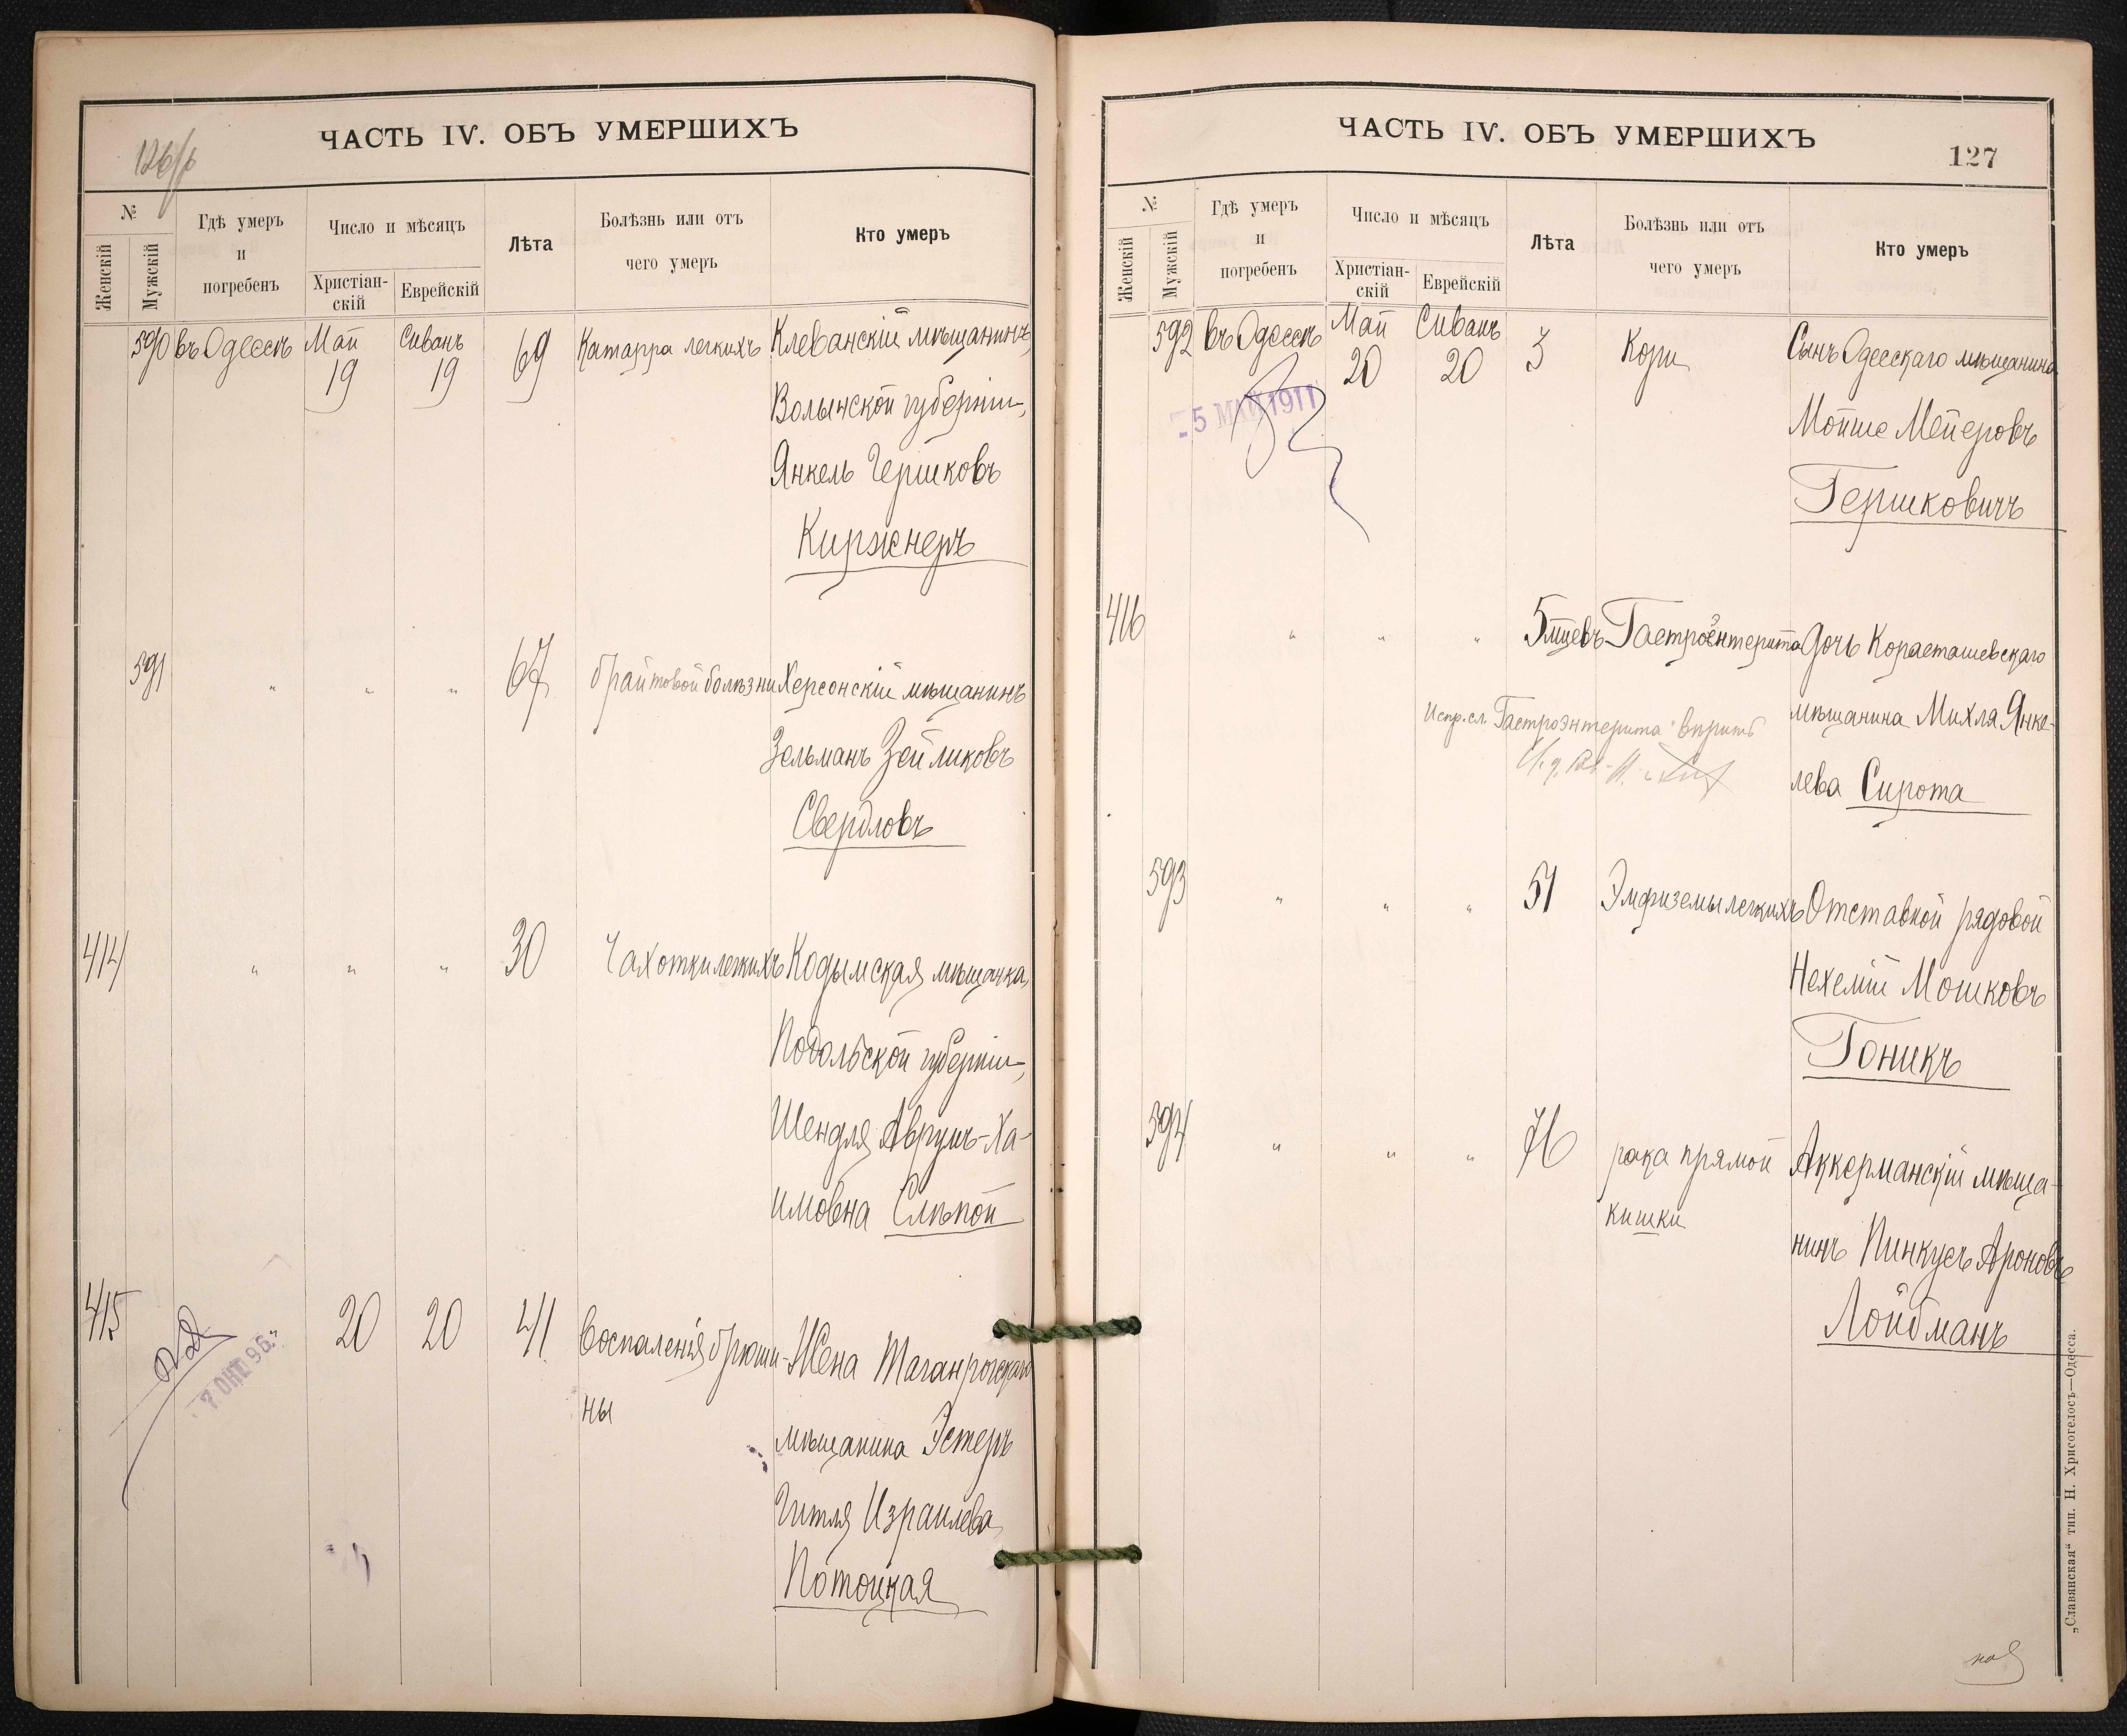 126/б
ЧАСТЬ IV. ОБЪ УМЕРШИХЪ
№
Женскій
Мужскій
Гдѣ умеръ
и
погребенъ
Число и мѣсяцъ
Христіан-
скій
Еврейскій
Лѣта
Болѣзнь или отъ
чего умеръ
Кто умеръ
590 въ Одессѣ Май Сиванъ 69 Катарра легкихъ Клеванскій мѣщанинъ,
19 19
Волынской губерніи,
Янкель Гершковъ
Киржнеръ
591 " " " 67 брайтовой болѣзни Херсонскій мѣщанинъ
Зельманъ Зейликовъ
Свердловъ
414 " " " 30 Чахотки легкихъ Кодымская мѣщанка,
Подольской губерніи,
Шендля Аврумъ-Ха-
имовна Слѣпой
415 20 20 41 Воспаленія брюши- Жена Таганрогскаго
ны
мѣщанина Эстеръ
Гитля Израилева
Потоцкая
ЧАСТЬ IV. ОБЪ УМЕРШИХЪ
127
№
Женскій
Мужскій
Гдѣ умеръ
и
погребенъ
Число и мѣсяцъ
Христіан-
скій
Еврейскій
Лѣта
Болѣзнь или отъ
чего умеръ
Кто умеръ
592 въ Одессѣ Май Сиванъ 3 Кори Сынъ Одесскаго мѣщанина
20 20
5 МАЙ 1911
Мойше Мейеровъ
Гершковичъ
416 " " " 5 мцевъ Гастроэнтерита Дочь Корасташевскаго
Испр. сл. Гастроэнтерита" вѣрить
мѣщанина Михля Янке-
лева Сирота
593 " " " 51 Эмфиземы легкихъ Отставной рядовой
Нехемій Мошковъ
Гоникъ
594 " " " 76 рака прямой Аккерманскій мѣща-
кишки
нинъ Пинкусъ Ароновъ
Лойбманъ
„Славянская“ тип. Н. Хрисогелосъ—Одесса.